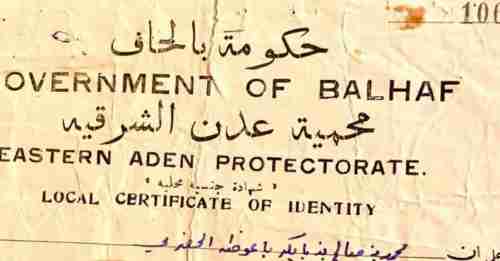 106
حكومة بالحاف
GOVERNMENT OF BALHAF
محمية عدن الشرقيه
EASTERN ADEN PROTECTORATE.
" شهادة جنسية محليه "
LOCAL CERTIFICATE OF IDENTITY
محمد بن سالم